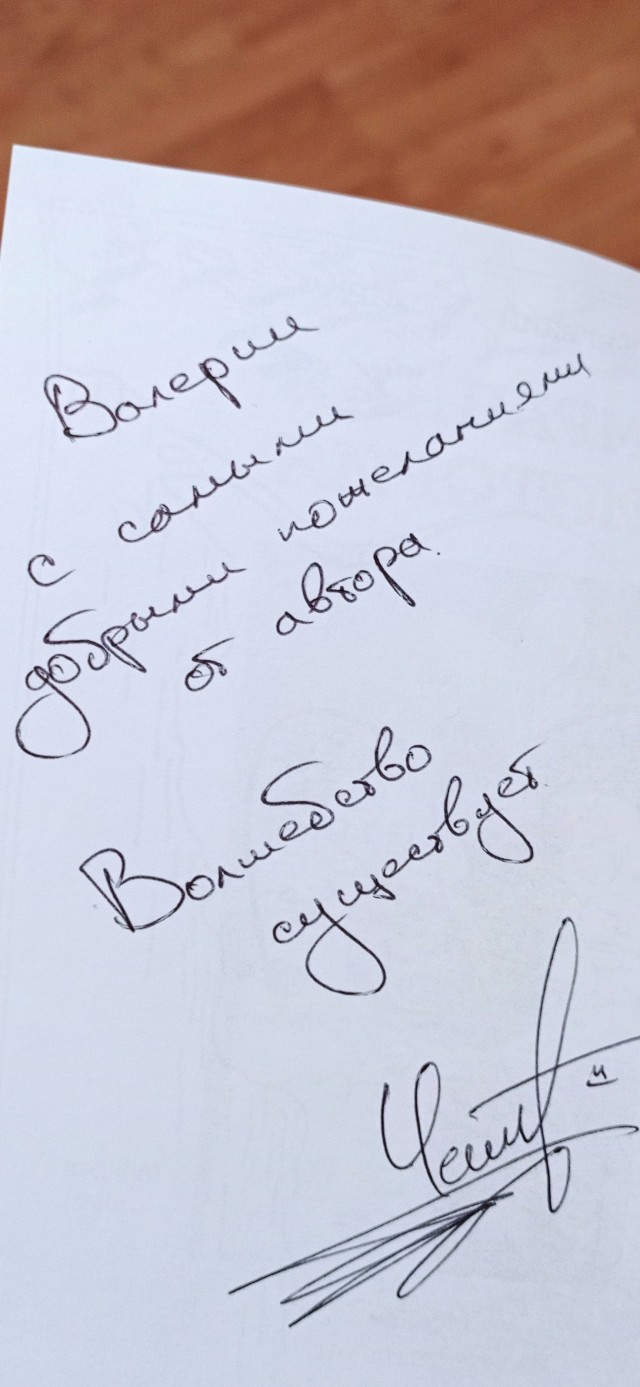 Валерии
с самыми
добрыми пожеланиями
от автора.
Волшебство
существует.